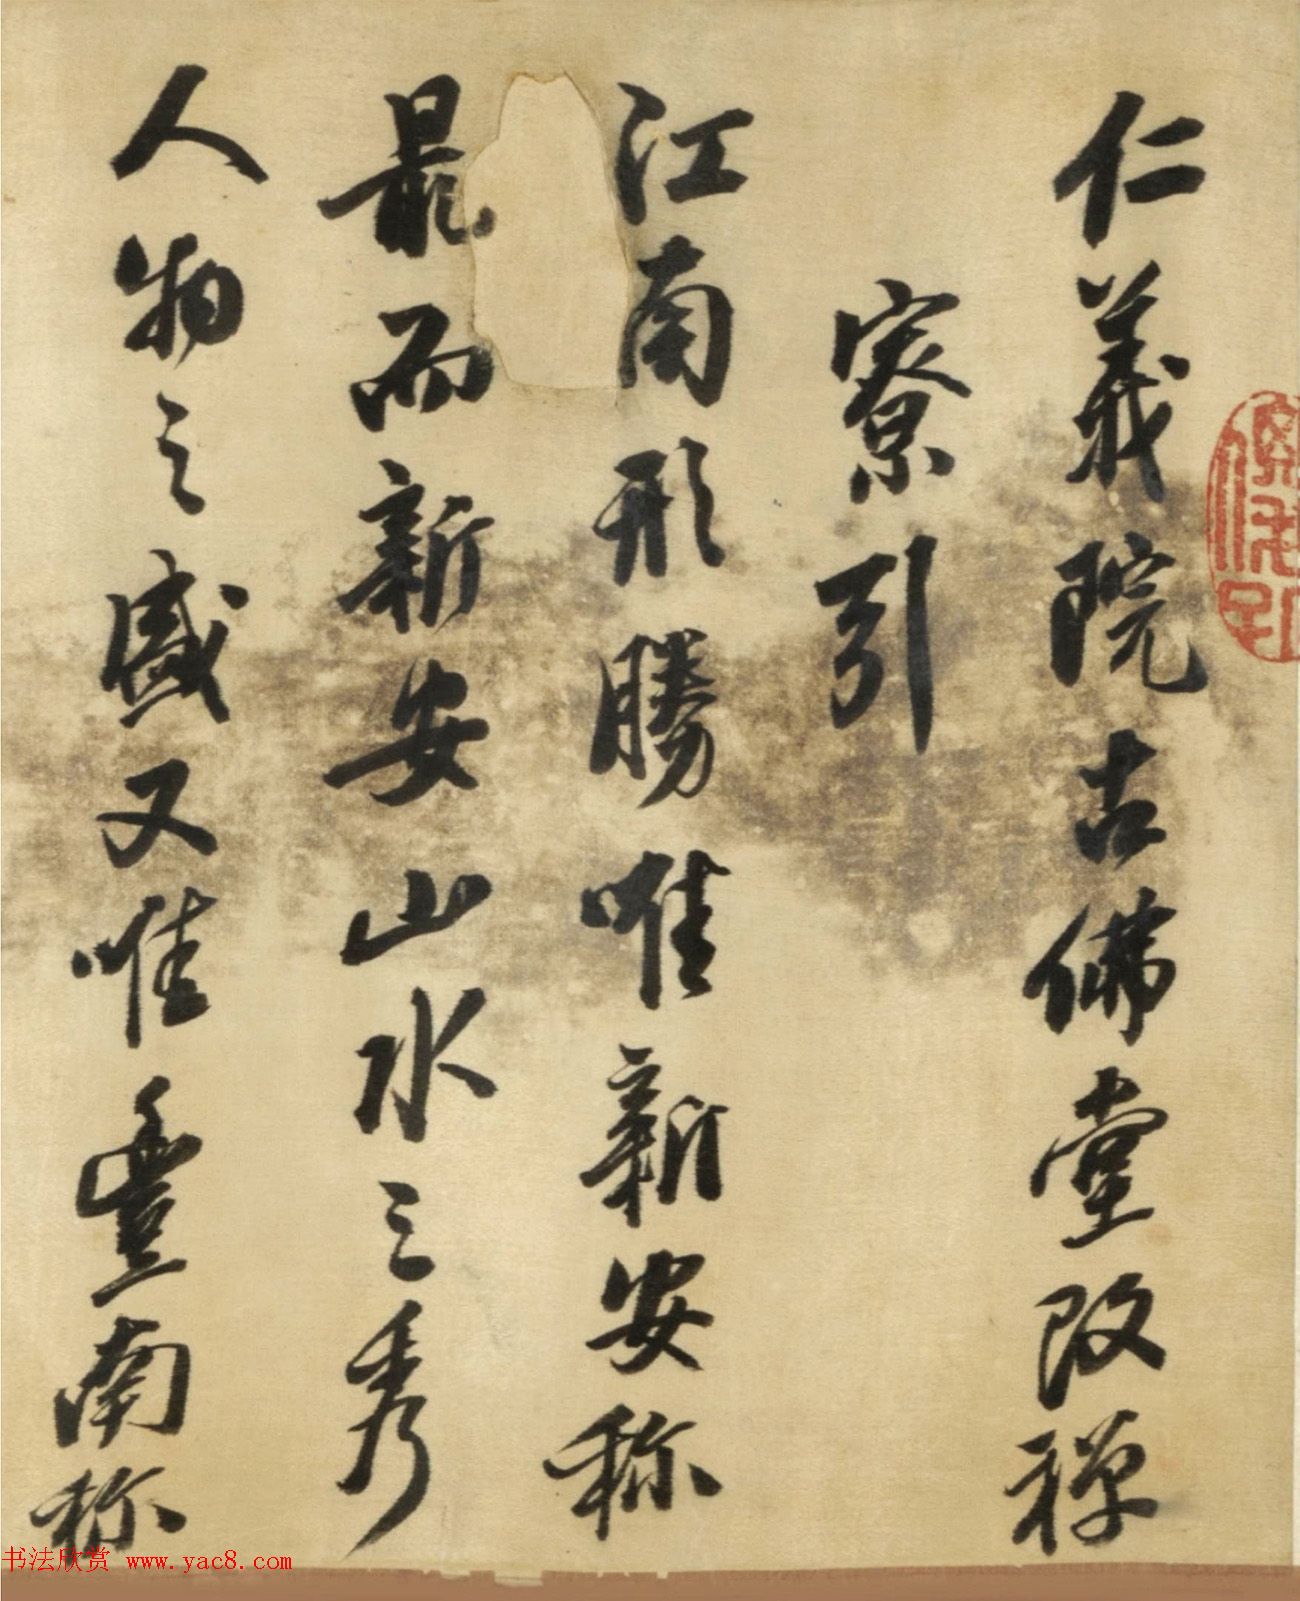 仁義院古佛堂改禪
寮引
江南形勝唯新安称
最而新安山水之秀
人物之盛又唯豐南称
书法欣赏 www.yac8.com